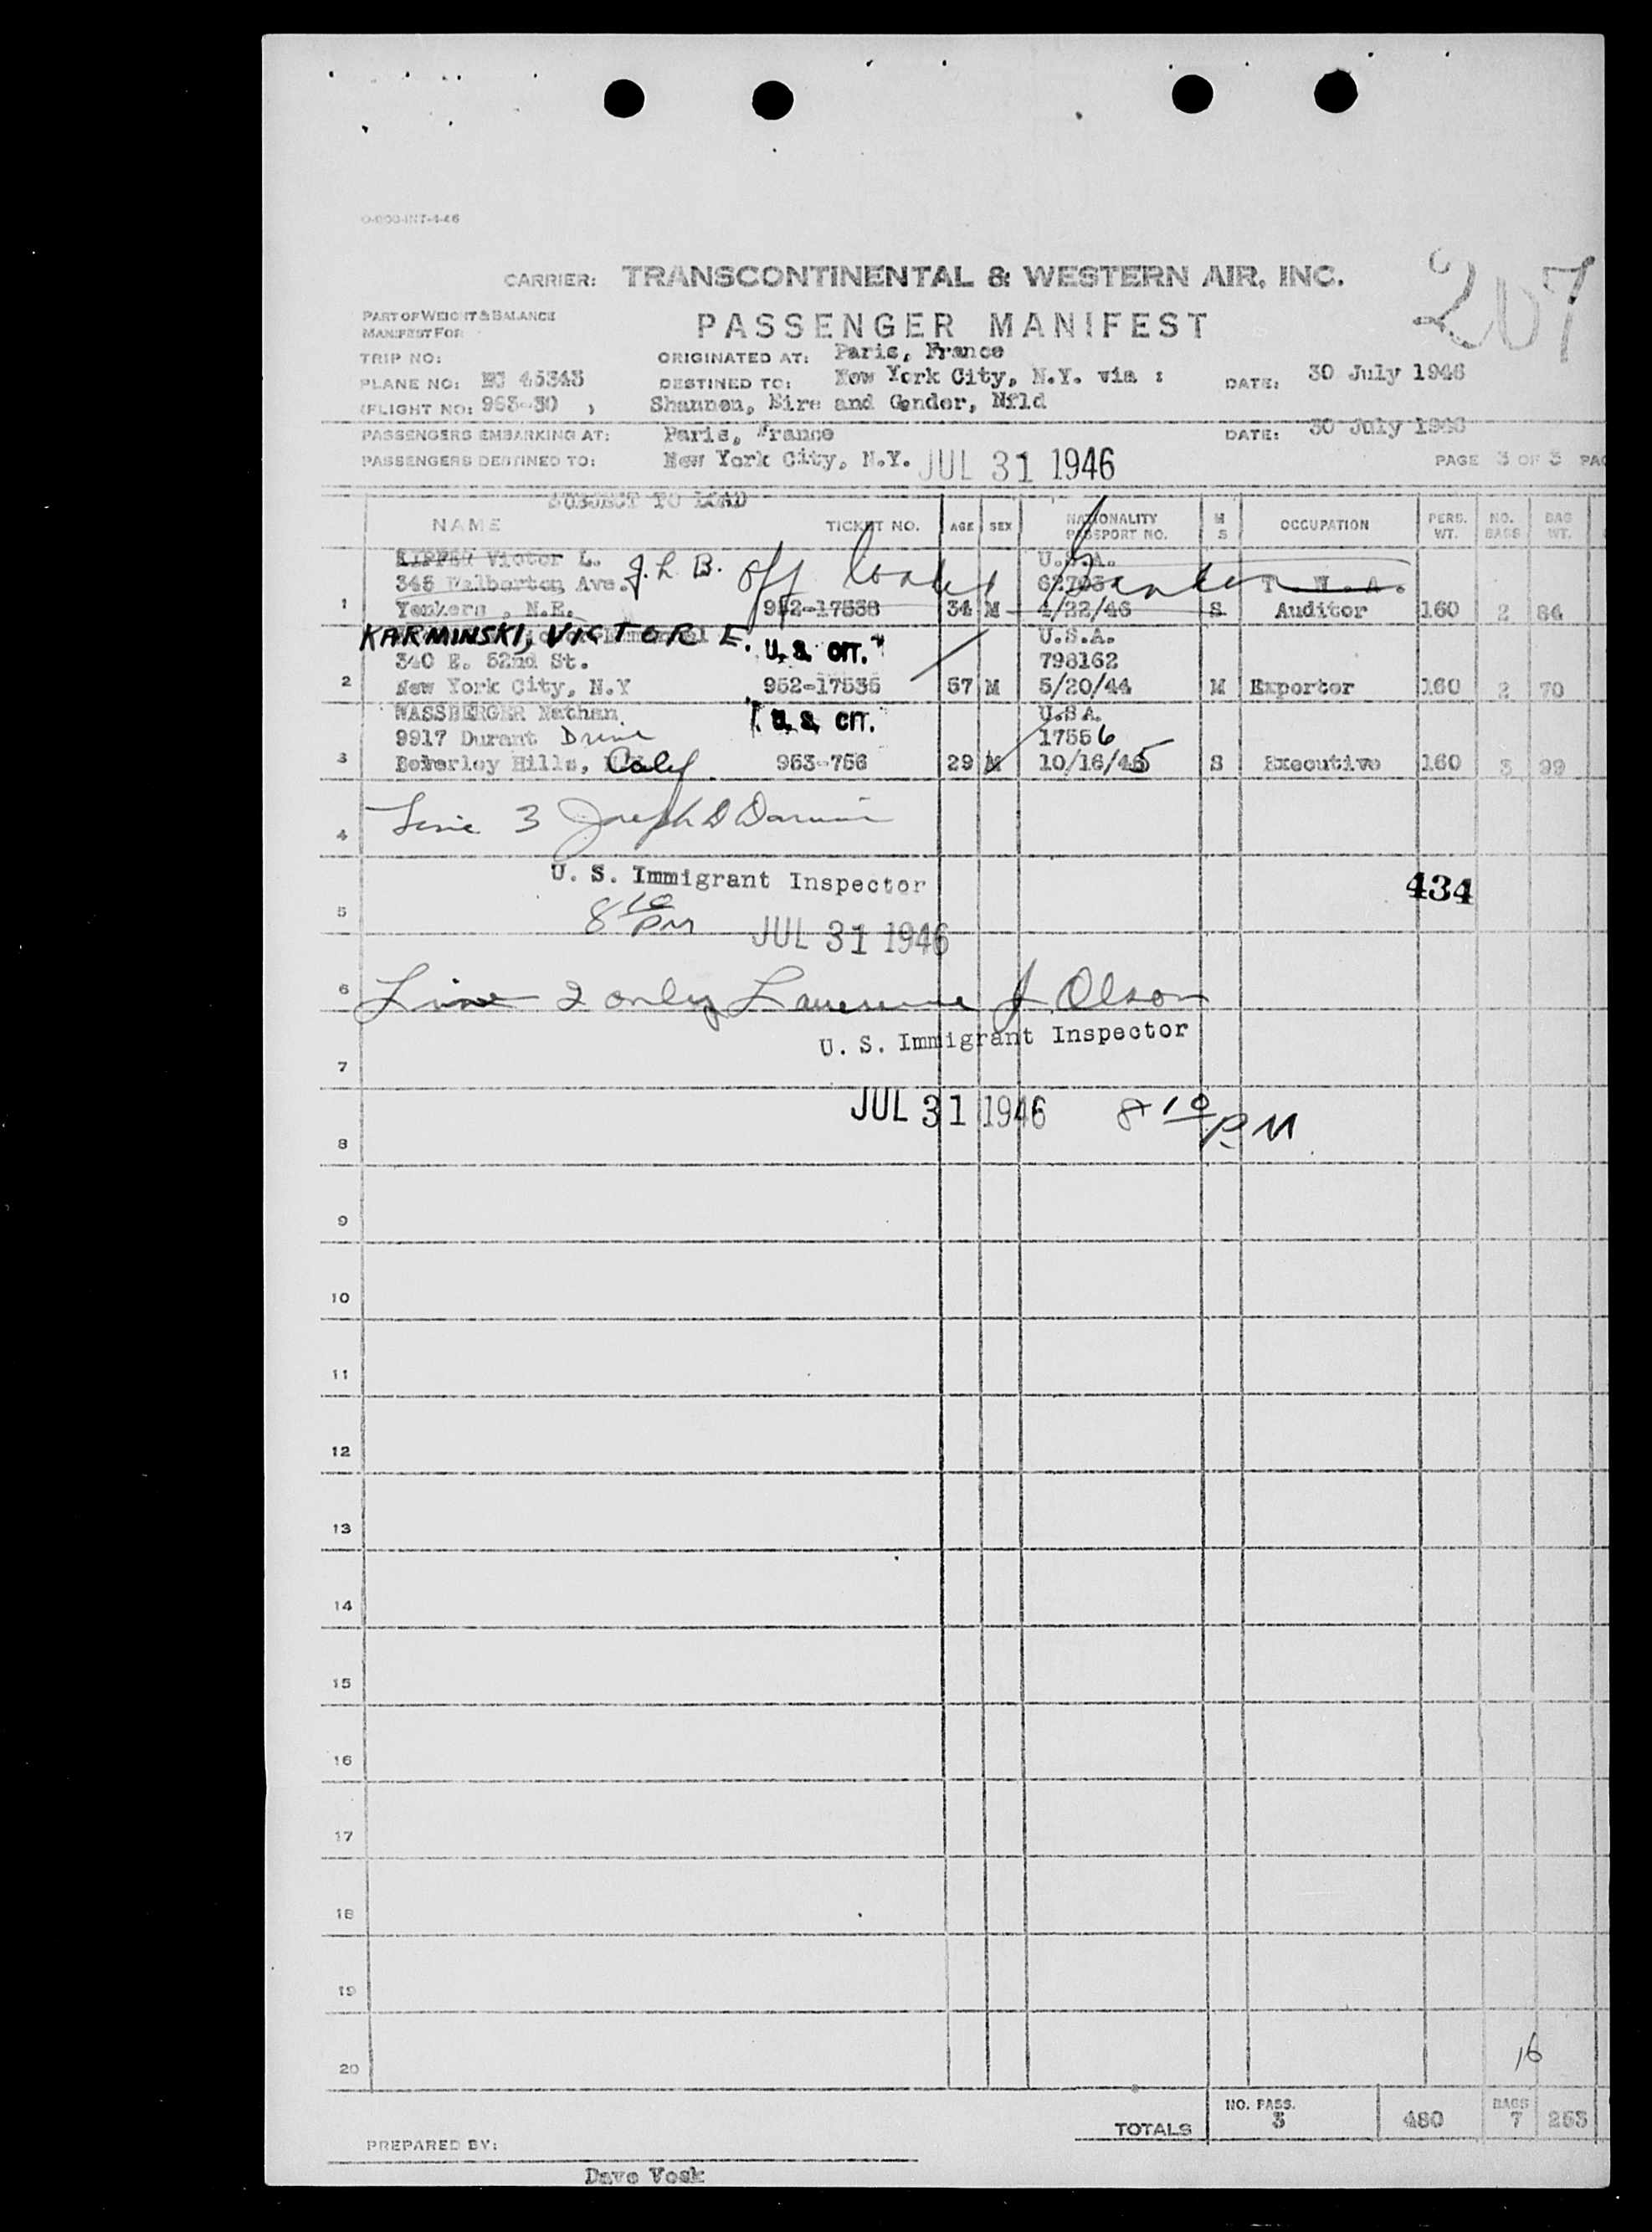 O-800-INT-4-46
CARRIER: TRANSCONTINENTAL & WESTERN AIR, INC.
207
PART OF WEIGHT & BALANCE
MANIFEST FOR
PASSENGER MANIFEST
TRIP NO: ORIGINATED AT: Paris, France
PLANE NO: 45343 DESTINED TO: New York City, N.Y. via : DATE: 30 July 1946
(FLIGHT NO: 963-30 ) Shannon, Eire and Gander, Nfld
PASSENGERS EMBARKING AT: Paris, France DATE: 30 July 1946
PASSENGERS DESTINED TO: New York City, N.Y. JUL 31 1946 PAGE 3 OF 3 PAG
SUBJECT TO LOAD
NAME TICKET NO. AGE SEX NATIONALITY PASSPORT NO. M S OCCUPATION PERS. WT. NO. BAGS BAG WT.
Victor L. U.S.A.
345 Ave. J. L. B. off loaded Gander 62703 T. W. A.
1 Yonkers, N.Y. 952-17538 34 M 4/22/46 S Auditor 160 2 84
KARMINSKI, VICTOR E. U. S. CIT. U.S.A.
340 E. 52nd St. 798162
2 New York City, N.Y 952-17535 57 M 5/20/44 M Exporter 160 2 70
WASSBERGER Nathan U. S. CIT. U.S A.
9917 Durant Drive 17556
3 Beverley Hills, Calif. 963-756 29 M 10/16/45 S Executive 160 3 99
4 Line 3 Joseph D
U. S. Immigrant Inspector
434
5 8 10 PM JUL 31 1946
6 Line 2 only Lawrence J. Olson
U. S. Immigrant Inspector
7
JUL 31 1946 8 10 P.M.
8
9
10
11
12
13
14
15
16
17
18
19
16
20
TOTALS NO. PASS. 3 480 BAGS 7 253
PREPARED BY:
Dave Vosk